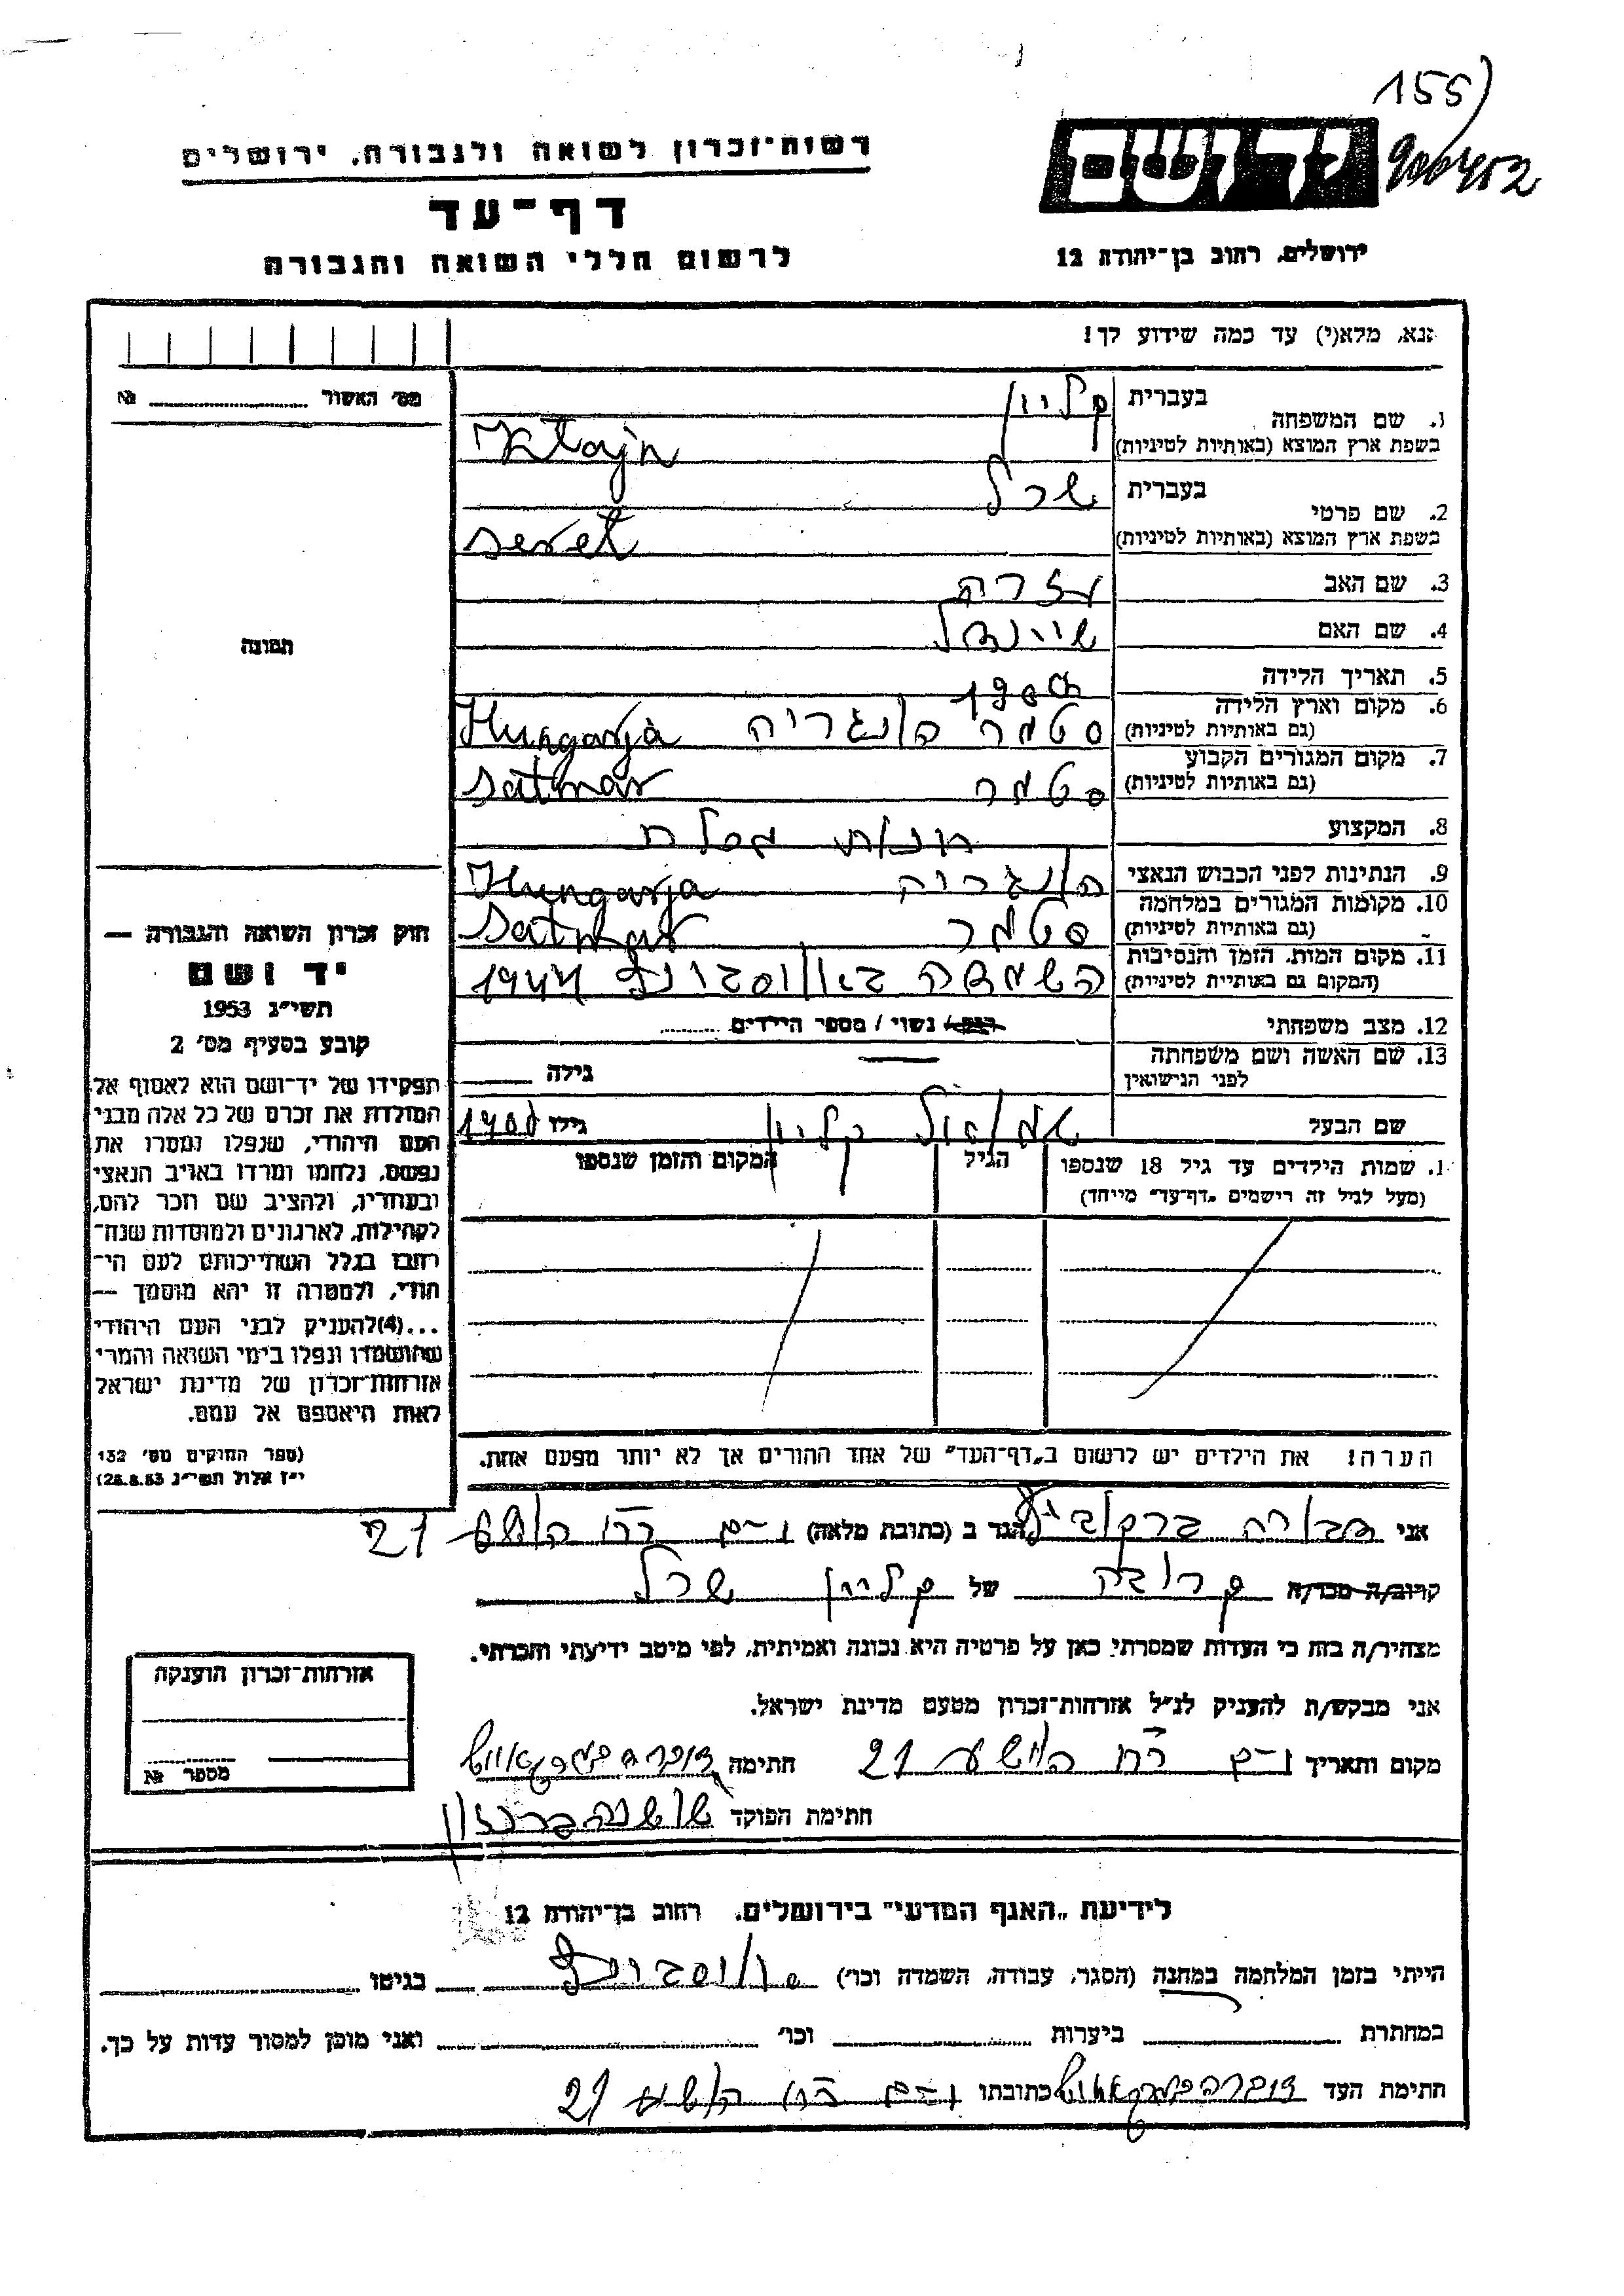 155)
900452
יד ושם
רשות־זכרון לשואה ולגבורה, ירושלים
דף־עד
לרשום חללי השואה והגבורה
ירושלים, רחוב בן־יהודה 12
נא, מלא(י) עד כמה שידוע לך!
מס' האשור №
1. שם המשפחה
בעברית קליין
בשפת ארץ המוצא (באותיות לטיניות) Klajn
2. שם פרטי
בעברית שרל
בשפת ארץ המוצא (באותיות לטיניות) serel
3. שם האב עזרה
4. שם האם שיינדל
5. תאריך הלידה
6. מקום וארץ הלידה (גם באותיות לטיניות) סטמר הונגריה Hungarja
7. מקום המגורים הקבוע (גם באותיות לטיניות) סטמר Satmar
8. המקצוע חנות מכלת
9. הנתינות לפני הכבוש הנאצי הונגריה Hungarja
10. מקומות המגורים במלחמה (גם באותיות לטיניות) סטמר Satmar
11. מקום המות, הזמן והנסיבות (המקום גם באותיות לטיניות) השמדה באוסבנצ 1944
12. מצב משפחתי רווק / נשוי / מספר הילדים
13. שם האשה ושם משפחתה לפני הנישואין — גילה
שם הבעל שמואל קליין גילו
1. שמות הילדים עד גיל 18 שנספו
(מעל לגיל זה רישמים "דף־עד" מייחד)
הגיל
המקום והזמן שנספו
הערה! את הילדים יש לרשום ב"דף־העד" של אחד ההורים אך לא יותר מפעם אחת.
תמונה
חוק זכרון השואה והגבורה —
יד ושם
תשי"ג 1953
קובע בסעיף מס' 2
תפקידו של יד־ושם הוא לאסוף אל
המולדת את זכרם של כל אלה מבני
העם היהודי, שנפלו ומסרו את
נפשם, נלחמו ומרדו באויב הנאצי
ובעוזריו, ולהציב שם וזכר להם,
לקהילות, לארגונים ולמוסדות שנח־
רבו בגלל השתייכותם לעם הי־
הודי, ולמטרה זו יהא מוסמך —
...(4)להעניק לבני העם היהודי
שהושמדו ונפלו בימי השואה והמרי
אזרחות־זכרון של מדינת ישראל
לאות היאספם אל עמם.
(ספר החוקים מס' 132
י"ז אלול תשי"ג 28.8.53)
אני דבורה ברקוביץ הגר ב (כתובת מלאה) רח' הושע 21
קרוב/ה מכר/ה קרובה של קליין שרל
מצהיר/ה בזה כי העדות שמסרתי כאן על פרטיה היא נכונה ואמיתית, לפי מיטב ידיעתי והכרתי.
אני מבקש/ת להעניק לנ"ל אזרחות־זכרון מטעם מדינת ישראל.
מקום ותאריך רח' הושע 21 חתימה
חתימת הפוקד שושנה
אזרחות־זכרון הוענקה
מספר №
לידיעת "האגף המדעי" בירושלים, רחוב בן־יהודה 12
הייתי בזמן המלחמה במחנה (הסגר, עבודה, השמדה וכו') בגיטו
במחתרת ביערות וכו' ואני מוכן למסור עדות על כך.
חתימת העד כתובתו רח' הושע 21